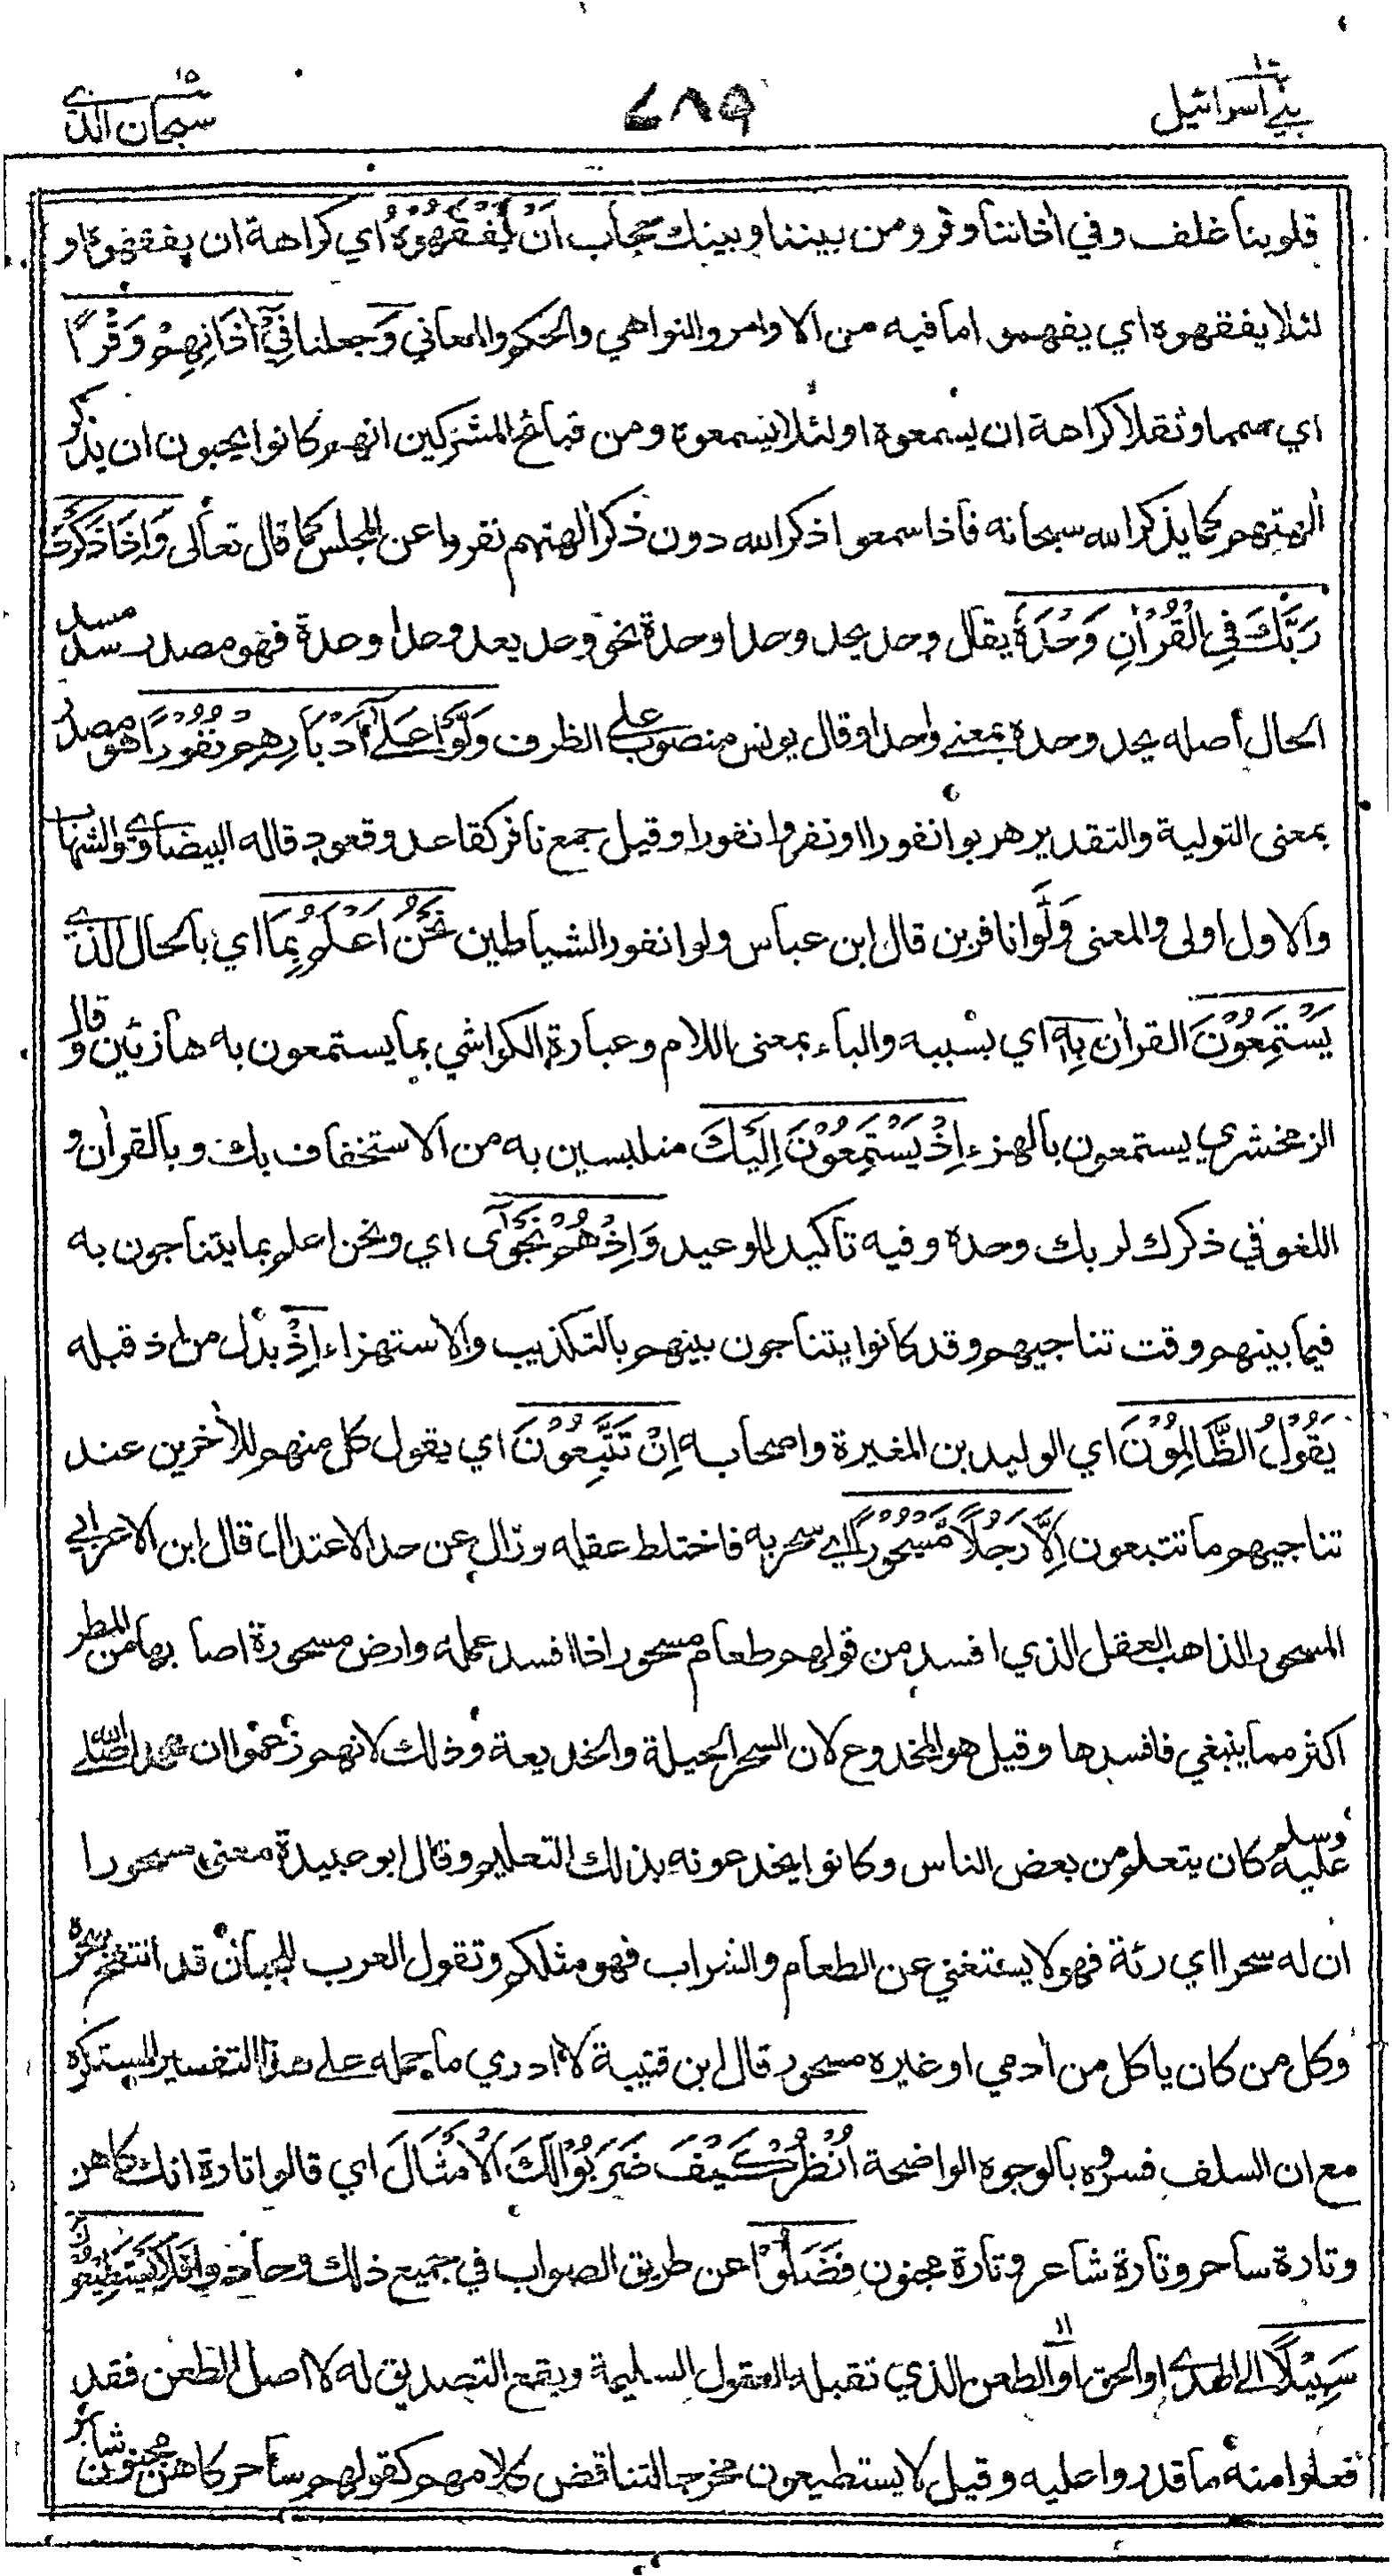 بني اسرائيل ١٧
٧٨٩
سبحان الذي ١٥
قلوبنا غلف وفي اٰذاننا وقر ومن بيننا وبينك حجاب اَنْ يَّفْقَهُوْهُ اي كراهة ان يفقهوه او
لئلا يفقهوه اي يفهموا ما فيه من الاوامر والنواهي والحكم والمعاني وَجعلنا فِيْٓ اٰذَانِهِمْ وَقْرًا
اي صمما وثقلا كراهة ان يسمعوه او لئلا يسمعوه ومن قبائح المشركين انهم كانوا يحبون ان يذكر
اٰلهتهم كما يذكر الله سبحانه فاذا سمعوا ذكر الله دون ذكر اٰلهتهم نفروا عن المجلس كما قال تعالى وَاِذَا ذَكَرْتَ
رَبَّكَ فِي الْقُرْاٰنِ وَحْدَهٗ يقال وحد يحد وحدا وحدة نحو وعد يعد وعدا وعدة فهو مصدر سد مسد
الحال اصله يحد وحده بمعنى واحدا وقال يونس منصوب على الظرف وَلَّوْا عَلٰٓى اَدْبَارِهِمْ نُفُوْرًا هو مصدر
بمعنى التولية والتقدير هربوا نفورا او نفروا نفورا وقيل جمع نافر كقاعد وقعود قاله البيضاوي والشهاب
والاول اولى والمعنى وَلَّوا نافرين قال ابن عباس ولوا نفور الشياطين نَحْنُ اَعْلَمُ بِمَا اي بالحال الذي
يَسْتَمِعُوْنَ القراٰن بِهٖٓ اي بسببه والباء بمعنى اللام وعبارة الكواشي بما يستمعون به هازئين وقال
الزمخشري يستمعون بالهزء اِذْ يَسْتَمِعُوْنَ اِلَيْكَ متلبسين به من الاستخفاف بك وبالقراٰن و
اللغو في ذكرك لربك وحده وفيه تاكيد للوعيد وَاِذْ هُمْ نَجْوٰٓى اي ونحن اعلم بما يتناجون به
فيما بينهم وقت تناجيهم وقد كانوا يتناجون بينهم بالتكذيب والاستهزاء اِذْ بدل من اذ قبله
يَقُوْلُ الظّٰلِمُوْنَ اي الوليد بن المغيرة واصحابه اِنْ تَتَّبِعُوْنَ اي يقول كل منهم للاٰخرين عند
تناجيهم ما تتبعون اِلَّا رَجُلًا مَّسْحُوْرًا اي سحر به فاختلط عقله وزال عن حد الاعتدال قال ابن الاعرابي
المسحور الذاهب العقل الذي افسد من قولهم طعام مسحور اذا افسد عمله وارض مسحورة اصابها من المطر
اكثر مما ينبغي فافسدها وقيل هو المخدوع لان السحر الحيلة والخديعة وذلك لانهم زعموا ان محمدا صلى الله
عليه وسلم كان يتعلم من بعض الناس وكانوا يخدعونه بذلك التعليم وقال ابو عبيدة معنى مسحورا
ان له سحرا اي رئة فهو لا يستغني عن الطعام والشراب فهو مثلكم وتقول العرب للجبان قد انتفخ سحره
وكل من كان ياكل من اٰدمي او غيره مسحور قال ابن قتيبة لا ادري ما حمله على هذا التفسير المستكره
مع ان السلف فسروه بالوجوه الواضحة اُنْظُرْ كَيْفَ ضَرَبُوْا لَكَ الْاَمْثَالَ اي قالوا تارة انك كاهن
وتارة ساحر وتارة شاعر وتارة مجنون فَضَلُّوْا عن طريق الصواب في جميع ذلك وحادوا فَلَا يَسْتَطِيْعُوْنَ
سَبِيْلًا الى الهدى او الحق او الطعن الذي تقبله العقول السليمة ويقع التصديق له لا اصل الطعن فقد
فعلوا منه ما قدروا عليه وقيل لا يستطيعون مخرجا لتناقض كلامهم كقولهم ساحر كاهن مجنون شاعر